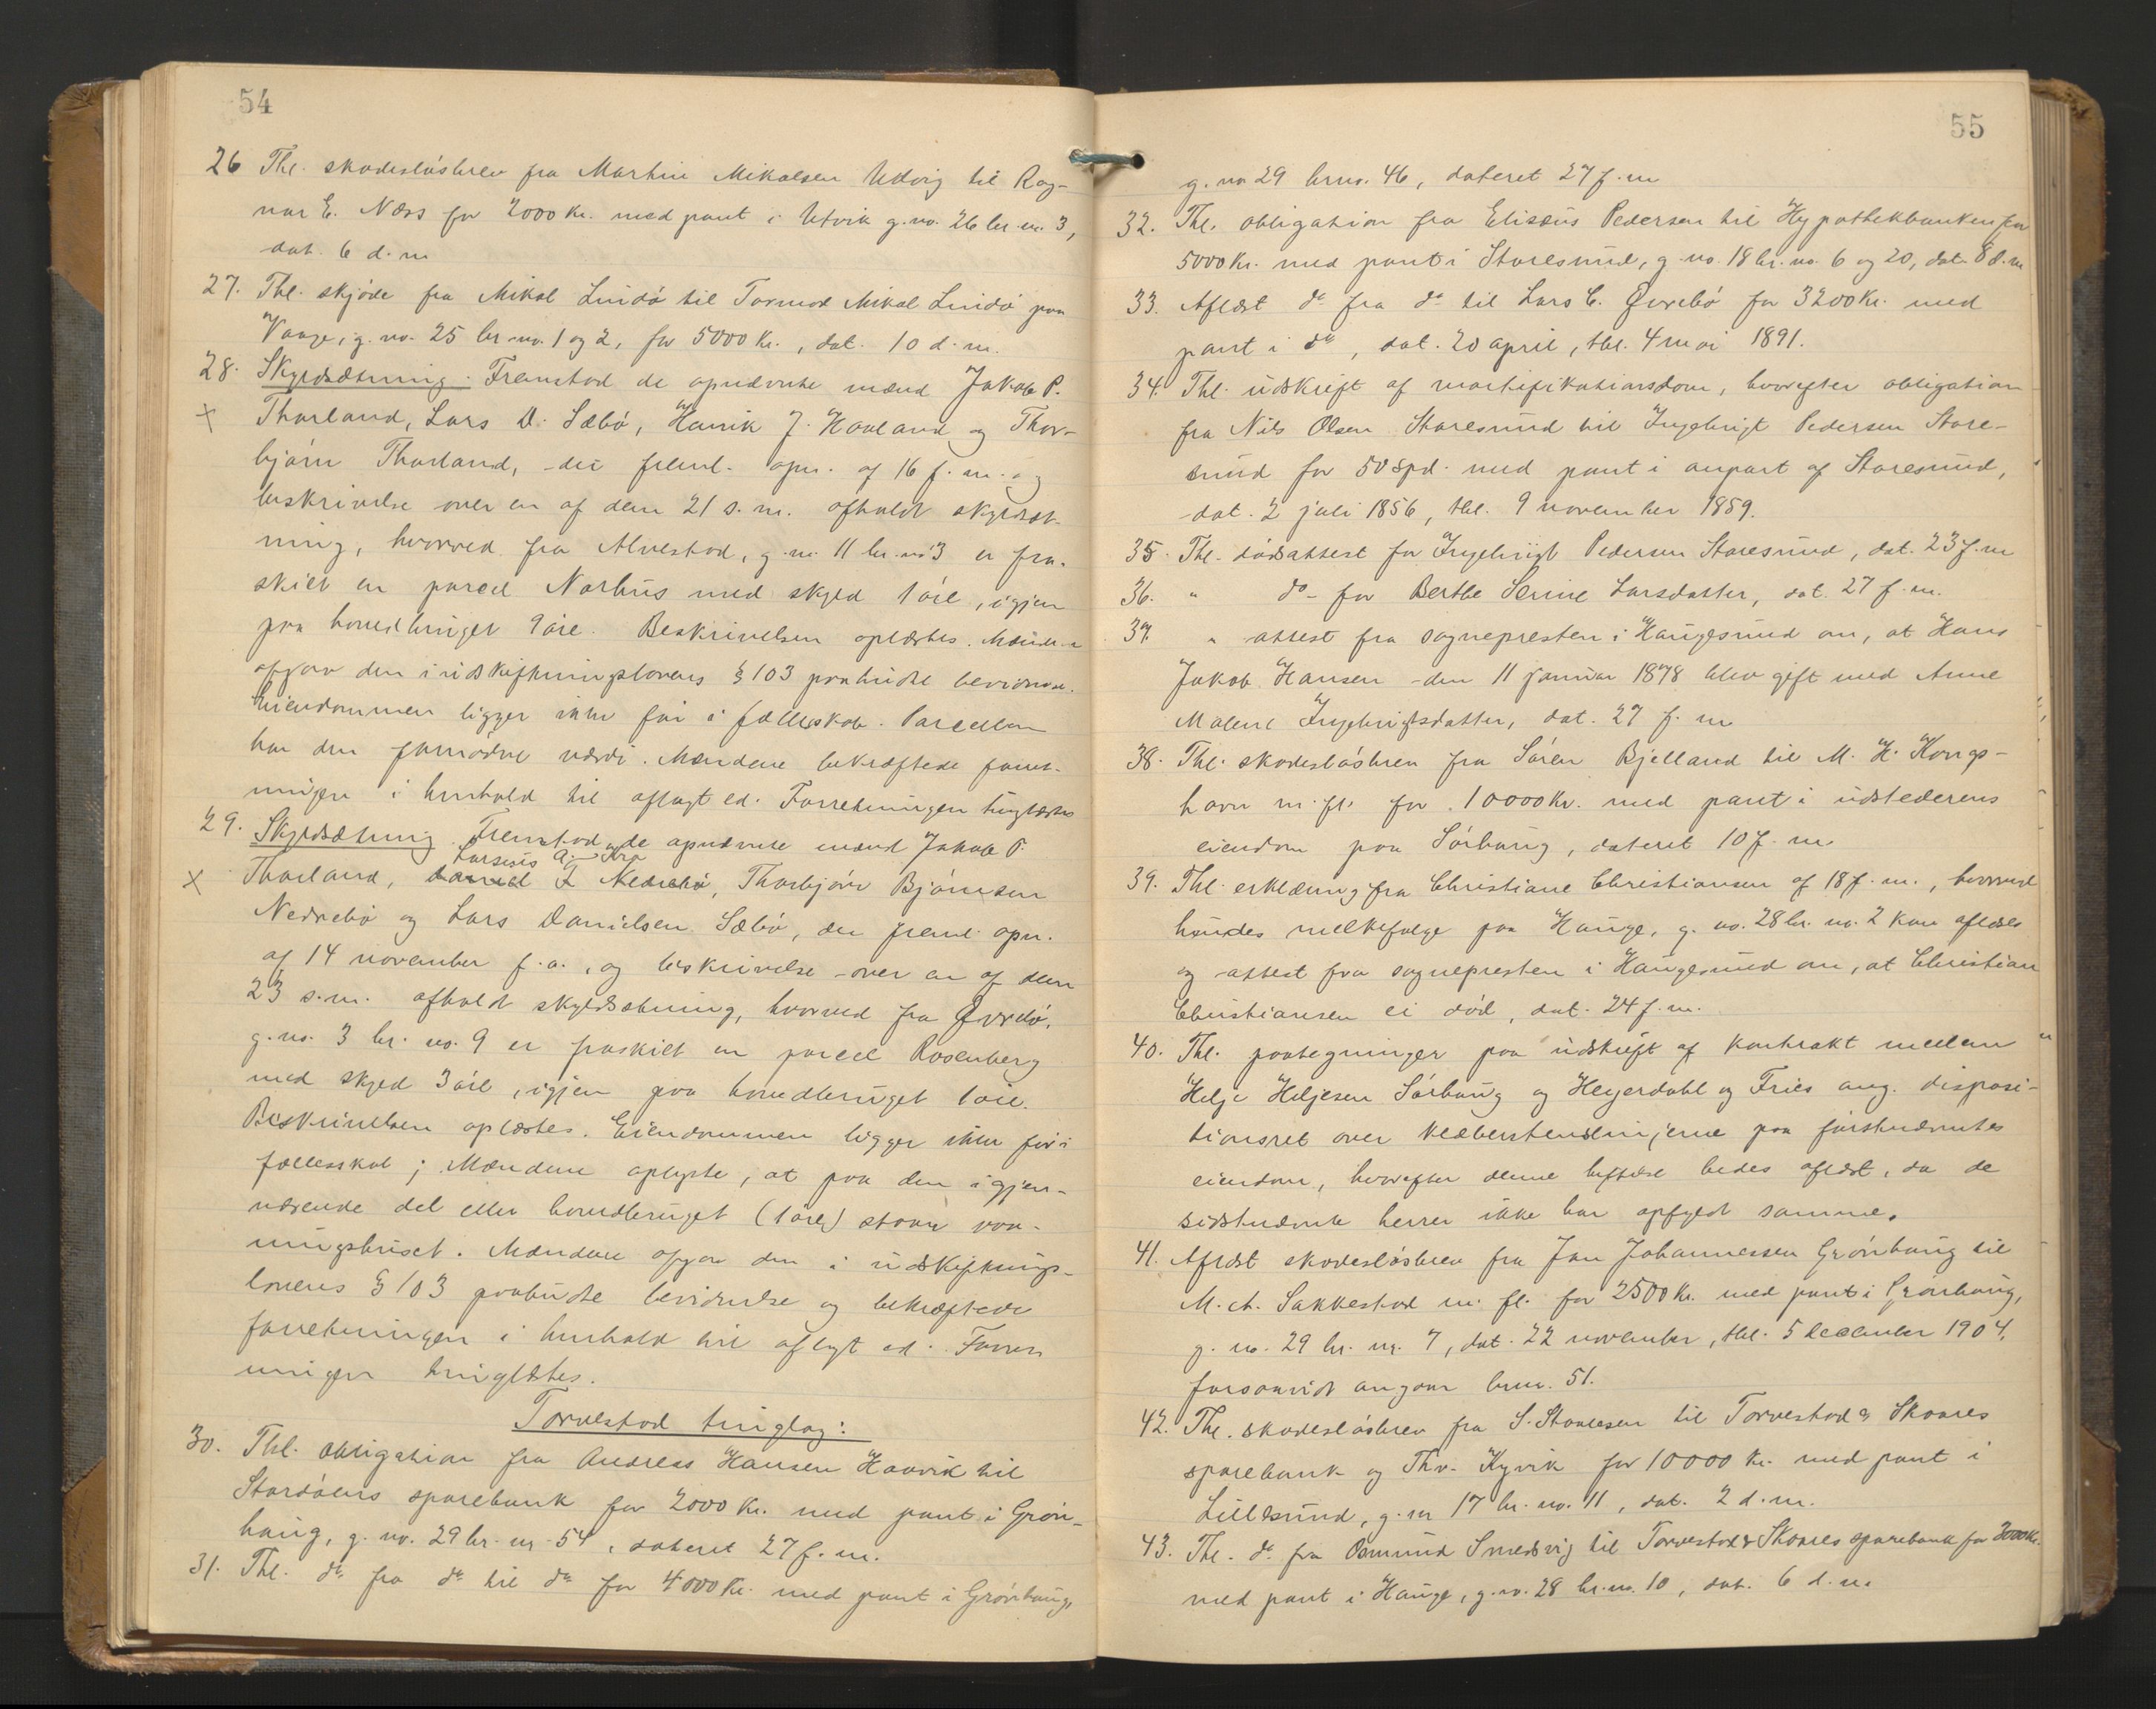 54
26 Thl. skadesløsbrev fra Martin Mikalsen Utvig til Rag-
nar E. Næss for 2000 Kr. med pant i Utvik g. no. 26 br. no. 3,
dat. 6 d. m.
27. Thl. skjøde fra Mikal Lindø til Tormod Mikal Lindø paa
Vaage, g. no. 25 br. no. 1 og 2, for 5000 Kr., dat. 10 d. m.
28. Skyldsætning. Fremstod de opnævnte mænd Jakob P.
x Thorland, Lars D. Sæbø, Henrik J. Haaland og Thor-
bjørn Thorland, der freml. opn. af 16 f. m. og
beskrivelse over en af dem 21 s. m. afholdt skyldsæt-
ning, hvorved fra Alvestad, g. no. 11 br. no. 3 er fra-
skilt en parcel Norhus med skyld 1 øre, igjen
paa hovedbruget 9 øre. Beskrivelsen oplæstes. Mændene
afgav den i udskiftningslovens § 103 paabudte bevidnelse.
Eiendommen ligger ikke før i fællesskab. Parcellen
har den fornødne værdi. Mændene bekræftede forret-
ningen i henhold til aflagt ed. Forretningen tinglæstes
29. Skyldsætning. Fremstod de opnævnte mænd Jakob P.
x Thorland, Thorbjørn Bjørnsen
Nedrebø og Lars Danielsen Sæbø, der freml. opn.
af 14 november f. a., og beskrivelse over en af dem
23 s. m. afholdt skyldsætning, hvorved fra Øvrebø,
g. no. 3 br. no. 9 er fraskilt en parcel Rosenberg
med skyld 3 øre, igjen paa hovedbruget 1 øre.
Beskrivelsen oplæstes. Eiendommen ligger ikke før i
fællesskab; Mændene oplyste, at paa den igjen-
værende del eller hovedbruget (1 øre) staar vaa-
ningshuset. Mændene afgav den i udskiftnings-
lovens § 103 paabudte bevidnelse og bekræftede
forretningen i henhold til aflagt ed. Forret-
ningen tinglæstes.
Torvestad tinglag:
30. Thl. obligation fra Andreas Hansen Haavik til
Stordøens sparebank for 2000 Kr. med pant i Grøn-
haug, g. no. 29 br. no. 54, dateret 27 f. m.
31. Thl. do fra do til do for 4000 Kr. med pant i Grønhaug,
55
g. no 29 brno. 46, dateret 27 f. m
32. Thl. obligation fra Elisæus Pedersen til Hypothekbanken for
5000 Kr. med pant i Storesund, g. no. 18 br. no. 6 og 20, dat. 8 d. m
33. Aflæst do fra do til Lars C. Øvrebø for 3200 Kr. med
pant i do, dat. 20 april, thl. 4 mai 1891.
34. Thl. udskrift af mortifikationsdom, hvorefter obligation
fra Nils Olsen Storesund til Ingebrigt Pedersen Store-
sund for 50 Spd. med pant i anpart af Storesund,
dat. 2 juli 1856, thl. 9 november 1859.
35. Thl. dødsattest for Ingebrigt Pedersen Storesund, dat. 23 f. m
36. " do for Berthe Serine Larsdatter, dat. 27 f. m.
37. " attest fra sognepresten i Haugesund om, at Hans
Jakob Hansen den 11 januar 1878 blev gift med Anne
Malene Ingebrigtsdatter, dat. 27 f. m
38. Thl. skadesløsbrev fra Søren Bjelland til M. H. Kongs-
havn m. fl. for 10000 Kr. med pant i udstederens
eiendom paa Sørhaug, dateret 10 f. m.
39. Thl. erklæring fra Christiane Christiansen af 18 f. m., hvorved
hendes melkefolge paa Hauge, g. no. 28 br. no. 2 kan aflæses
og attest fra sognepresten i Haugesund om, at Christian
Christiansen er død, dat. 24 f. m.
40. Thl. paategninger paa udskrift af kontrakt mellem
Helje Heljesen Sørhaug og Heyerdahl og Fries ang. disposi-
tionsret over kleberstenslinjerne paa førstnævntes
eiendom, hvorefter denne heftelse bedes aflæst, da de
sidstnævnte herrer ikke har opfyldt samme.
41. Aflæst skadesløsbrev fra Jan Johannessen Grønhaug til
M. A. Sakkestad m. fl. for 2500 Kr. med pant i Grønhaug,
g. no. 29 br. no. 7, dat. 22 november, thl. 5 december 1904,
forsaavidt angaar brno. 51.
42. Thl. skadesløsbrev fra S. Staalesen til Torvestad & Skaares
sparebank og Thv. Kyvik for 10000 Kr. med pant i
Lillesund, g. no 17 br. no. 11, dat. 2 d. m.
43. Thl. do fra Osmund Smedsvig til Torvestad & Skaares sparebank for 3000 Kr.
med pant i Hauge, g. no. 28 br. no. 10, dat. 6 d. m.